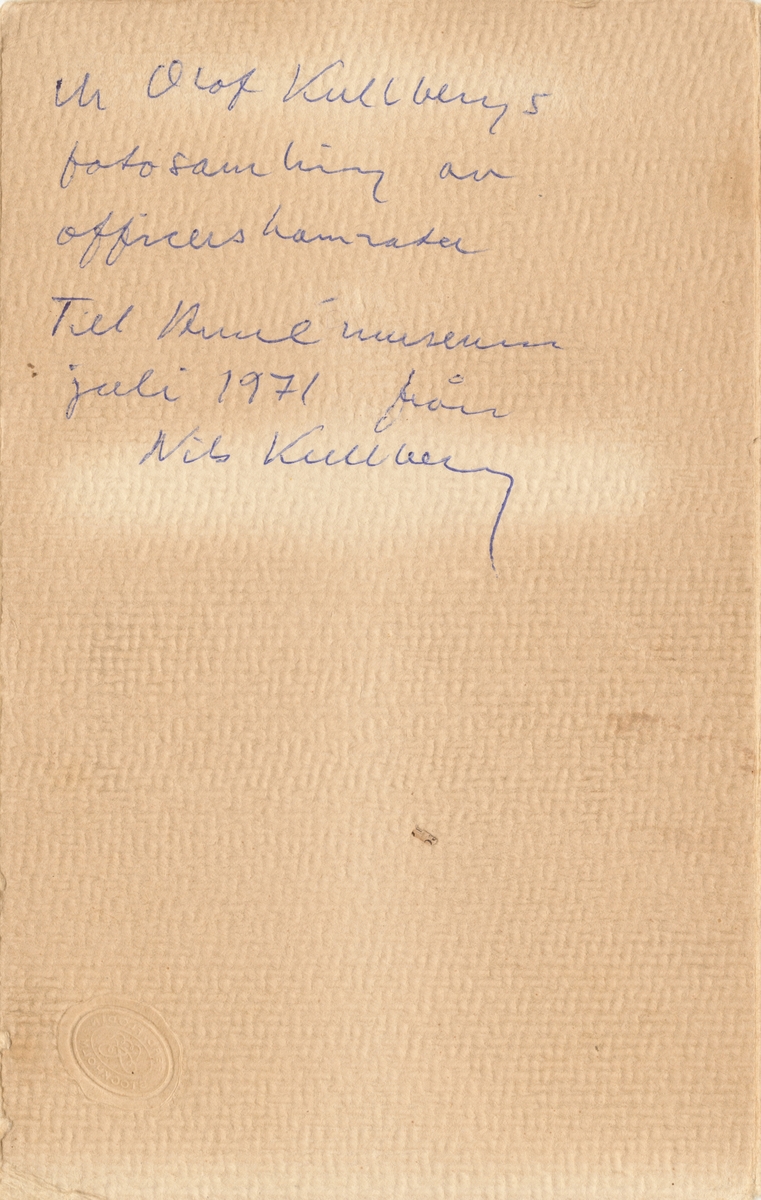 Ur Olof Kullbergs
fotosamling av
officerskamrater
Till Armémuseum
juli 1971 från
Nils Kullberg